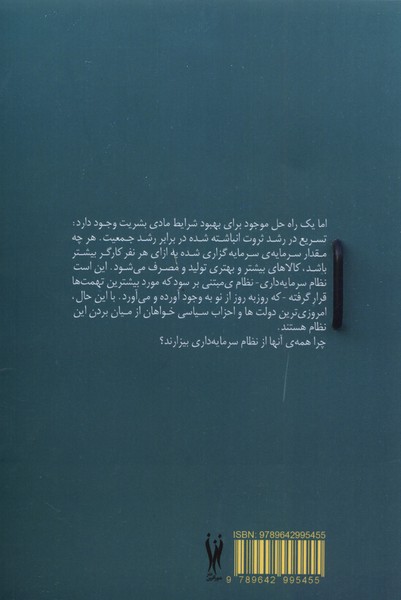 اما یک راه حل موجود برای بهبود شرایط مادی بشریت وجود دارد:
تسریع در رشد ثروت انباشته شده در برابر رشد جمعیت. هر چه
مقدار سرمایه‌ی سرمایه گزاری شده به ازای هر نفر کارگر بیشتر
باشد، کالاهای بیشتر و بهتری تولید و مصرف می‌شود. این است
نظام سرمایه‌داری- نظام ی‌مبتنی بر سود که مورد بیشترین تهمت‌ها
قرار گرفته - که روزبه روز از نو به وجود آورده و می‌آورد. با این حال،
امروزی‌ترین دولت ها و احزاب سیاسی خواهان از میان بردن این
نظام هستند.
چرا همه‌ی آنها از نظام سرمایه‌داری بیزارند؟
ISBN: 9789642995455
9 789642 995455